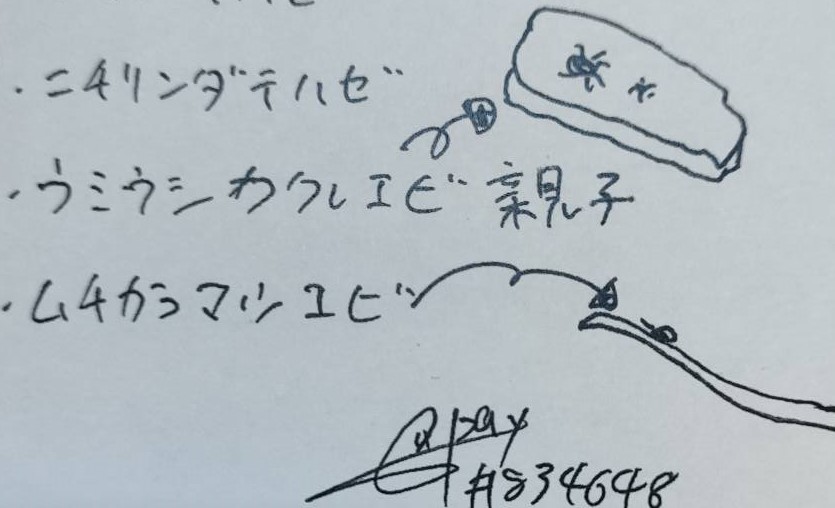 ・ニチリンダテハゼ
・ウミウシカクレエビ 親子
・ムチカラマツエビ
#834648